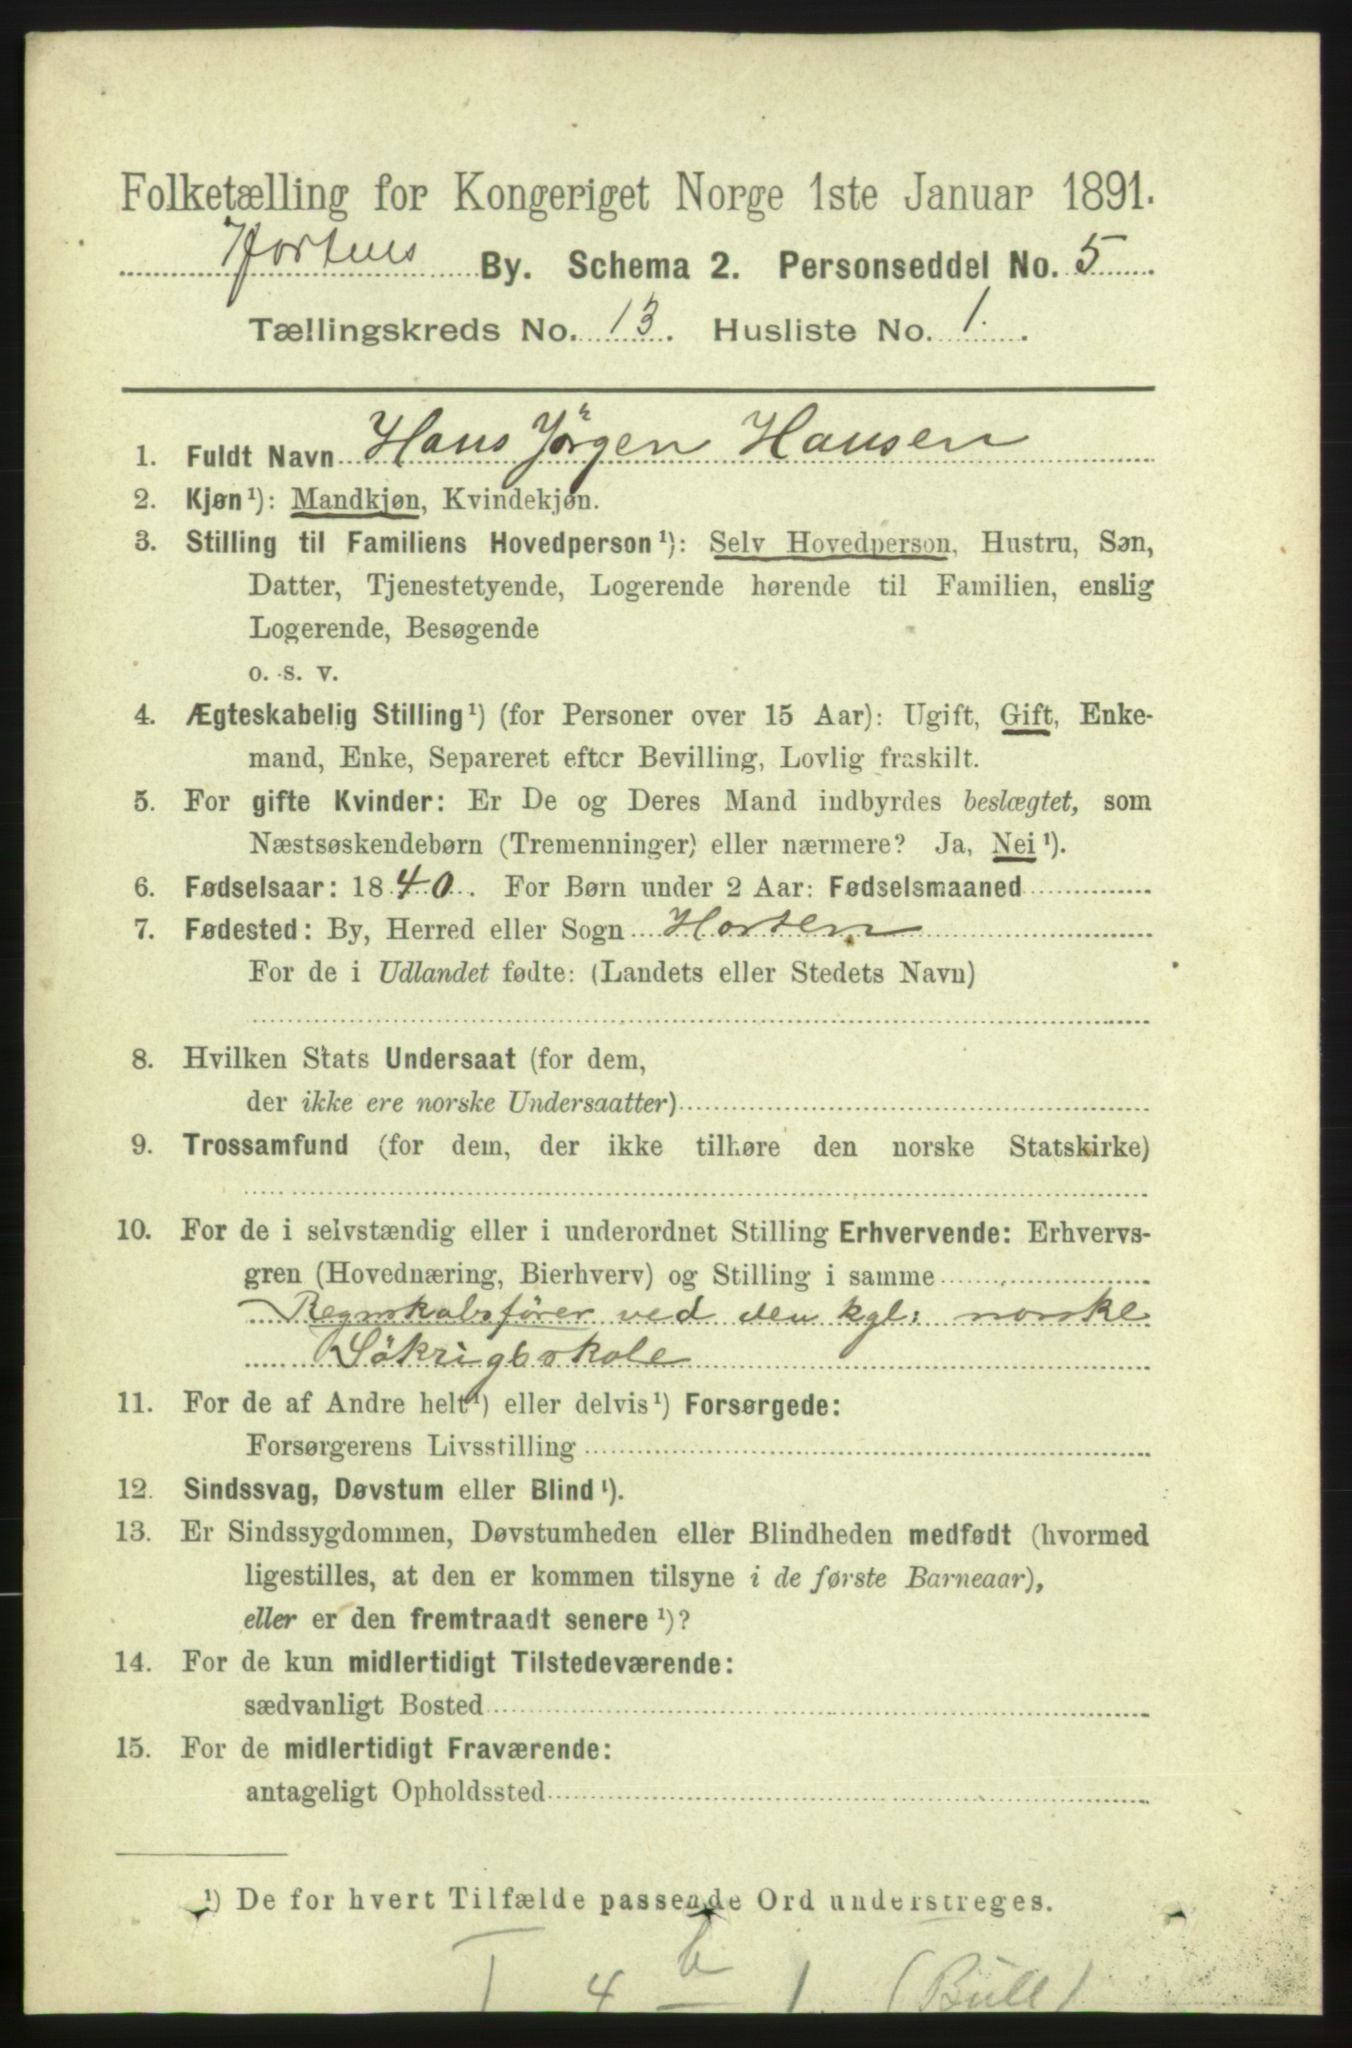 Folketælling for Kongeriget Norge 1ste Januar 1891.
Hortens By. Schema 2. Personseddel No. 5
Tællingskreds No. 13. Husliste No. 1.
1. Fuldt Navn Hans Jörgen Hansen
2. Kjøn¹): Mandkjøn, Kvindekjøn.
3. Stilling til Familiens Hovedperson¹): Selv Hovedperson, Hustru, Søn,
Datter, Tjenestetyende, Logerende hørende til Familien, enslig
Logerende, Besøgende
o. s. v.
4. Ægteskabelig Stilling¹) (for Personer over 15 Aar): Ugift, Gift, Enke-
mand, Enke, Separeret efter Bevilling, Lovlig fraskilt.
5. For gifte Kvinder: Er De og Deres Mand indbyrdes beslægtet, som
Næstsøskendebørn (Tremenninger) eller nærmere? Ja, Nei¹).
6. Fødselsaar: 1840. For Børn under 2 Aar: Fødselsmaaned
7. Fødested: By, Herred eller Sogn Horten
For de i Udlandet fødte: (Landets eller Stedets Navn)
8. Hvilken Stats Undersaat (for dem,
der ikke ere norske Undersaatter)
9. Trossamfund (for dem, der ikke tilhøre den norske Statskirke)
10. For de i selvstændig eller i underordnet Stilling Erhvervende: Erhvervs-
gren (Hovednæring, Bierhverv) og Stilling i samme
Regnskabsfører ved den kgl: norske
Sökrigsskole
11. For de af Andre helt¹) eller delvis¹) Forsørgede:
Forsørgerens Livsstilling
12. Sindssvag, Døvstum eller Blind¹).
13. Er Sindssygdommen, Døvstumheden eller Blindheden medfødt (hvormed
ligestilles, at den er kommen tilsyne i de første Barneaar),
eller er den fremtraadt senere¹)?
14. For de kun midlertidigt Tilstedeværende:
sædvanligt Bosted
15. For de midlertidigt Fraværende:
antageligt Opholdssted
¹) De for hvert Tilfælde passende Ord understreges.
I 4 b – 1 (Bull)